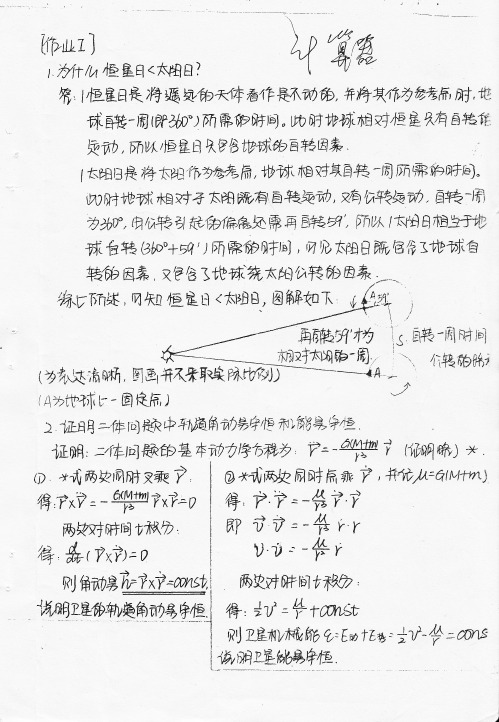 [作业I]
计算器
1.为什么恒星日<太阳日?
答:1恒星日是将遥远的天体看作是不动的,并将其作为参考点时,地
球自转一周(即360°)所需的时间。此时地球相对恒星只有自转
运动,所以恒星日只包含地球的自转因素.
1太阳日是将太阳作为参考点,地球相对其自转一周所需的时间。
此时地球相对于太阳既有自转运动,又有公转运动,自转一周
为360°,由公转引起的偏角还需再自转59′,所以1太阳日相当于地
球自转(360°+59′)所需的时间,可见太阳日既包含了地球自
转的因素,又包含了地球绕太阳公转的因素.
综上所述,可知恒星日<太阳日,图解如下:
A 59′
再自转59′才为
相对太阳的一周
S 自转一周时间
公转的路
A
(为表达清晰,图画并不采取实际比例)
(A为地球上一固定点)
2.证明二体问题中轨道角动量守恒和能量守恒.
证明:二体问题的基本动力学方程为: r̈⃗=-G(M+m)/r³ r⃗ (证明略) *.
①. *式两边同时叉乘r⃗:
得: r⃗×r̈⃗=-G(M+m)/r³ r⃗×r⃗=0
两边对时间t积分:
得: d/dt(r⃗×ṙ⃗)=0
则角动量h⃗=r⃗×ṙ⃗=const,
说明卫星的轨道角动量守恒.
②*式两边同时点乘ṙ⃗,并记μ=G(M+m)
得: ṙ⃗·r̈⃗=-μ/r³ r⃗·ṙ⃗
即 v⃗·v̇⃗=-μ/r³ r·ṙ
v·v̇=-μ/r² ṙ
两边对时间t积分:
得: ½v²=μ/r+const
则卫星机械能ε=E动+E势=½v²-μ/r=cons
说明卫星能量守恒.